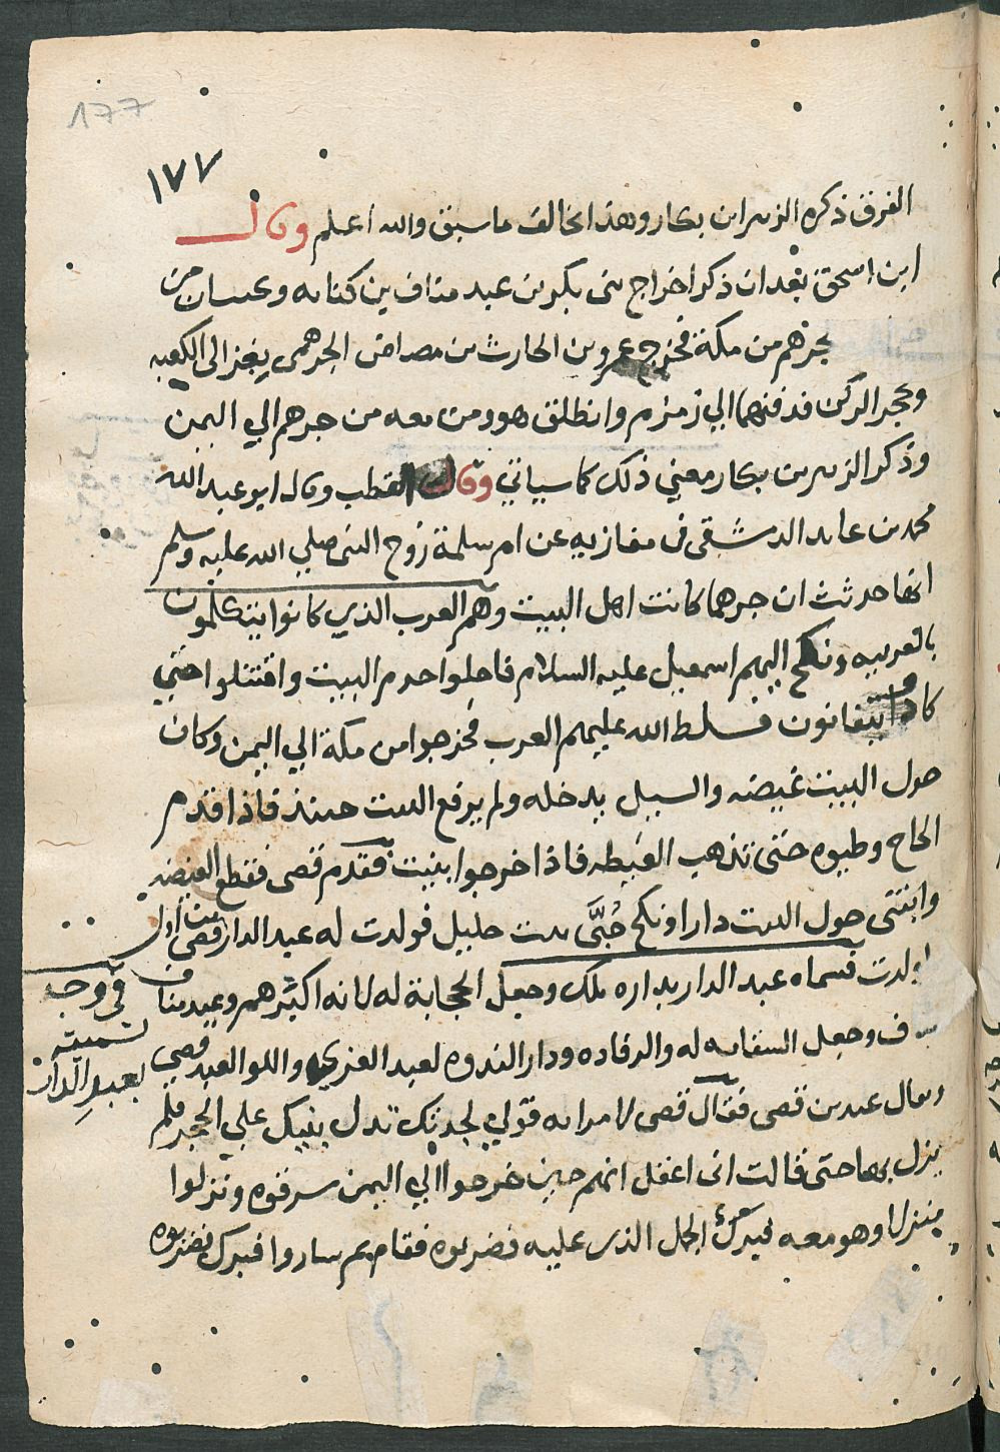 177
١٧٧
الفرق ذكره الزبير ابن بكار وهذا الخالف ما سبق والله اعلم وقال
ابن اسحق بعد ان ذكر اخراج بنى بكر بن عبد مناف بن كنانه وغسان من
بجرهم من مكة فخرج عمرو بن الحارث بن مصاص الجرهمى بغزالى الكعبه
وحجر الركن فدفنهما الي زمزم وانطلق هو ومن معه من جرهم الي اليمن
وذكر الزبير بن بكار معني ذلك كما سياتي وقال القطب وقال ابو عبد الله
محمد بن عايد الدمشقى فى مغازيه عن ام سلمة زوج النبى صلي الله عليه وسلم
انها حدثت ان جرهما كانت اهل البيت وهم العرب الذي كانوا يتكلمون
بالعربيه ونكح اليهم اسمعيل عليه السلام فاحلوا حرم البيت واقتتلوا حتي
كادوا يتفانون فسلط الله عليهم العرب فخرجوا من مكة الي اليمن وكان
حول البيت غيضه والسيل يدخله ولم يرفع البيت حينئذ فاذا قدم
الحاج وطيوه حتى تذهب الغيطه فاذا خرجوا ابنيت فقدم قصى فقطع الغيضه
وابتنى حول البيت دارا ونكح حُبَّى بنت حليل فولدت له عبد الدار قصى اول
ولدت فسماه عبد الدار بداره ملك وجعل الحجابة له لانه اكبرهم وعبد مناف
ف وجعل السقايه له والرفاده ودار الندوه لعبد العزي واللوا لعبد قصي
في وجه
تسميته
بعبد الدار
ويقال عبد بن قصى فقال قصى لامراته قولي لجدتك تدل بنيك علي الحجر فلم
يزل بها حتى قالت انى اعقل انهم حين خرجوا الي اليمن سرقوه ونزلوا
منزلا وهو معه فبرك الجمل الذى عليه فضربوه فقام ثم ساروا فبرك فضربوه